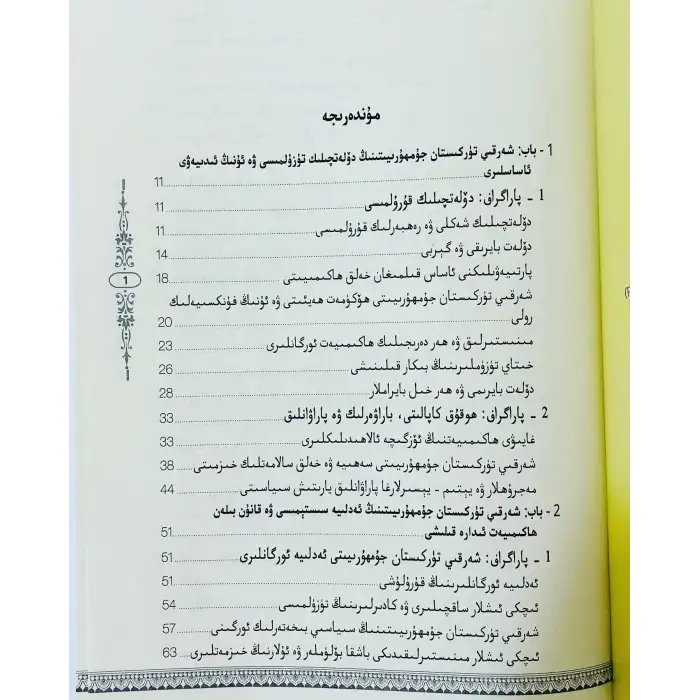 مۇندەرىجە
1 - باب: شەرقىي تۈركىستان جۇمھۇرىيىتىنىڭ دۆلەتچىلىك تۈزۈلمىسى ۋە ئۇنىڭ ئىدىيەۋى
ئاساسلىرى 11
1 - پاراگراف: دۆلەتچىلىك قۇرۇلمىسى 11
دۆلەتچىلىك شەكلى ۋە رەھبەرلىك قۇرۇلمىسى 11
دۆلەت بايرىقى ۋە گېربى 14
پارتىيەۋىلىكنى ئاساس قىلمىغان خەلق ھاكىمىيىتى 18
1
شەرقىي تۈركىستان جۇمھۇرىيىتى ھۆكۈمەت ھەيئىتى ۋە ئۇنىڭ فۇنكسىيەلىك
رولى 20
مىنىستىرلىق ۋە ھەر دەرىجىلىك ھاكىمىيەت ئورگانلىرى 23
خىتاي تۈزۈملىرىنىڭ بىكار قىلىنىشى 26
دۆلەت بايرىمى ۋە ھەر خىل بايراملار 28
2 - پاراگراف: ھوقۇق كاپالىتى، باراۋەرلىك ۋە پاراۋانلىق 33
غايىۋى ھاكىمىيەتنىڭ ئۆزگىچە ئالاھىدىلىكلىرى 33
شەرقىي تۈركىستان جۇمھۇرىيىتى سەھىيە ۋە خەلق سالامەتلىك خىزمىتى 38
مەجرۇھلار ۋە يېتىم - يېسىرلارغا پاراۋانلىق يارىتىش سىياسىتى 44
2 - باب: شەرقىي تۈركىستان جۇمھۇرىيىتىنىڭ ئەدلىيە سىستېمىسى ۋە قانۇن بىلەن
ھاكىمىيەت ئىدارە قىلىشى 51
1 - پاراگراف: شەرقىي تۈركىستان جۇمھۇرىيىتى ئەدلىيە ئورگانلىرى 51
ئەدلىيە ئورگانلىرىنىڭ قۇرۇلۇشى 51
ئىچكى ئىشلار ساقچىلىرى ۋە كادىرلىرىنىڭ تۈزۈلمىسى 54
شەرقىي تۈركىستان جۇمھۇرىيىتىنىڭ سىياسىي بىخەتەرلىك ئورگىنى 57
ئىچكى ئىشلار مىنىستىرلىقىدىكى باشقا بۆلۈملەر ۋە ئۇلارنىڭ خىزمەتلىرى 63